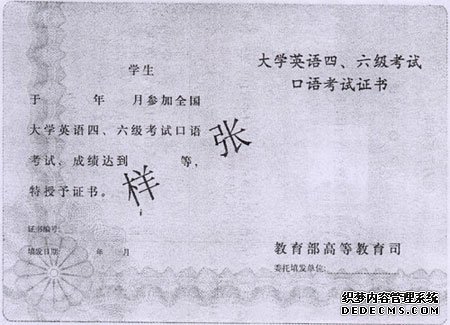 学生
于 年 月参加全国
大学英语四、六级考试口语
考试，成绩达到 等，
特授予证书。
证书编号：
填发日期： 年 月
大学英语四、六级考试
口语考试证书
样张
教育部高等教育司
委托填发单位：
织梦内容管理系统
DEDECMS.COM